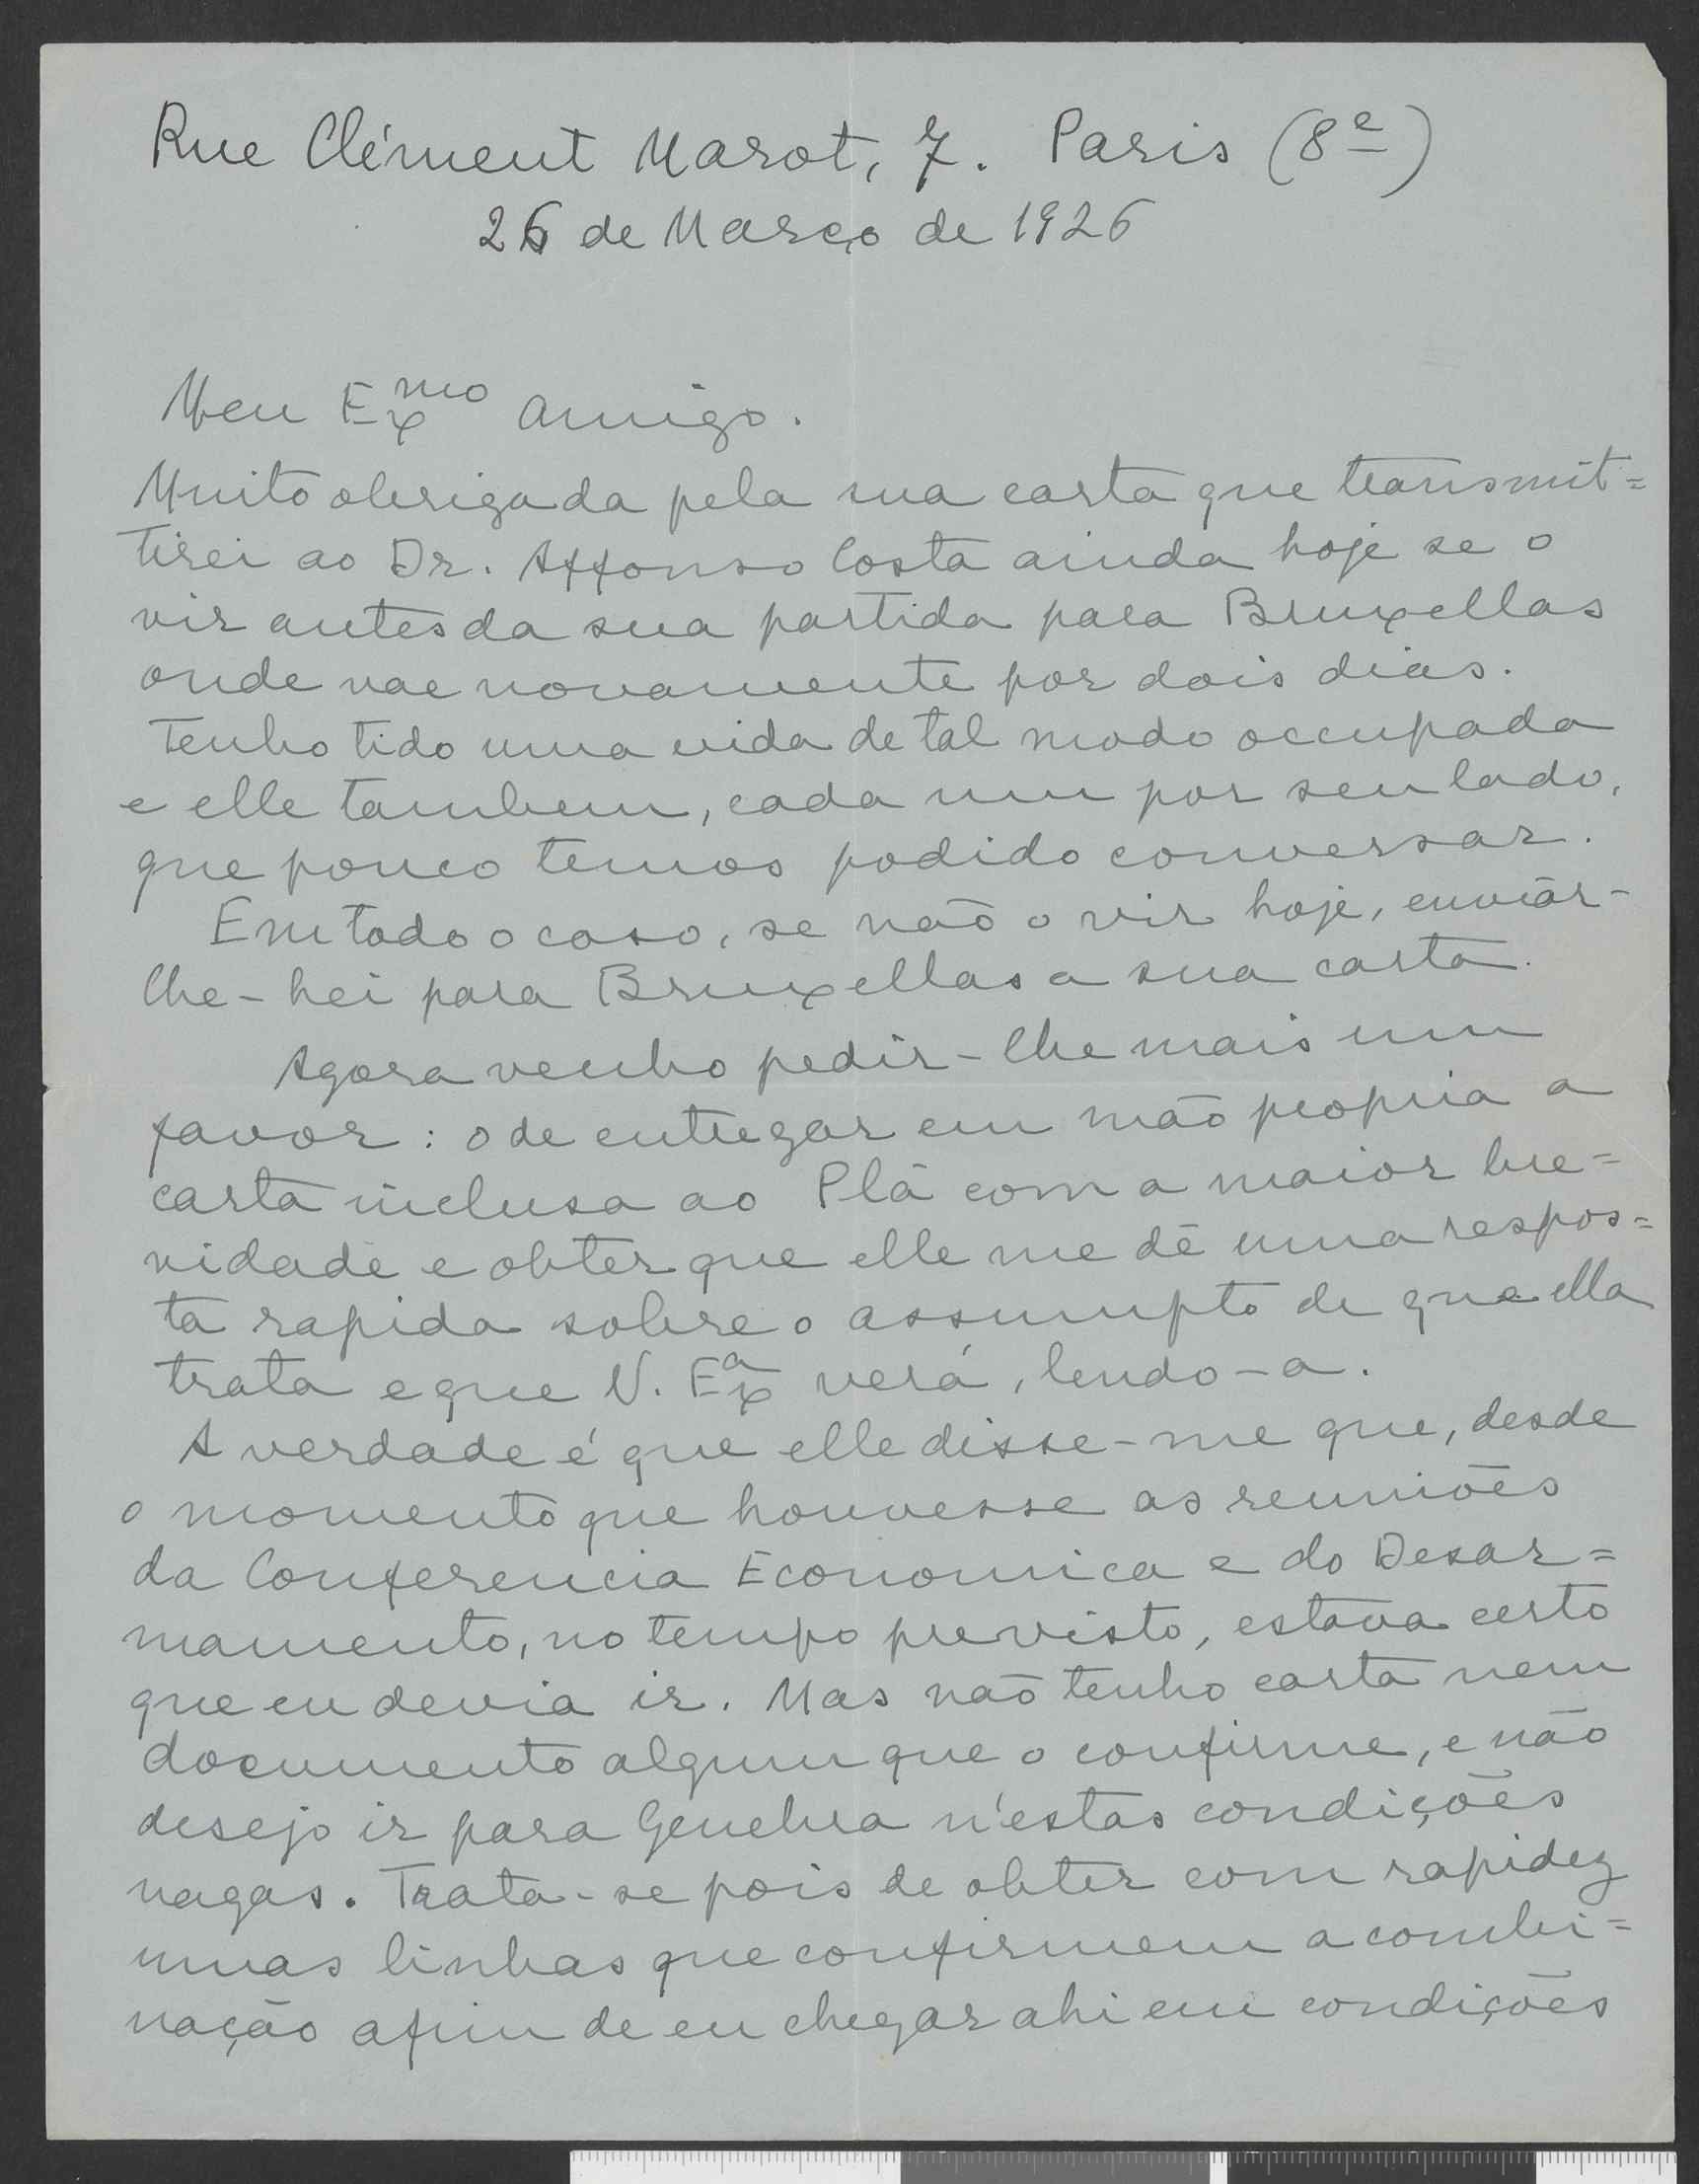 Rue Clément Marot, 7. Paris (8e)
26 de Março de 1926
Meu Exmo amigo.
Muito obrigada pela sua carta que transmit=
tirei ao Dr. Affonso Costa ainda hoje se o
vir antes da sua partida para Bruxellas
onde vae novamente por dois dias.
Tenho tido uma vida de tal modo occupada
e elle tambem, cada um por seu lado,
que pouco temos podido conversar.
Em todo o caso, se não o vir hoje, enviar-
lhe-hei para Bruxellas a sua carta.
Agora venho pedir-lhe mais um
favor: o de entregar em mão propria a
carta inclusa ao Plá com a maior bre=
vidade e obter que elle me dê uma respos=
ta rapida sobre o assumpto de que ella
trata e que V. Exa verá, lendo-a.
A verdade é que elle disse-me que, desde
o momento que houvesse as reuniões
da Conferencia Economica e do Desar=
mamento, no tempo previsto, estava certo
que eu devia ir. Mas não tenho carta nem
documento algum que o confirme, e não
desejo ir para Genebra n'estas condições
vagas. Trata-se pois de obter com rapidez
umas linhas que confirmem a combi=
nação afim de eu chegar ahi em condições